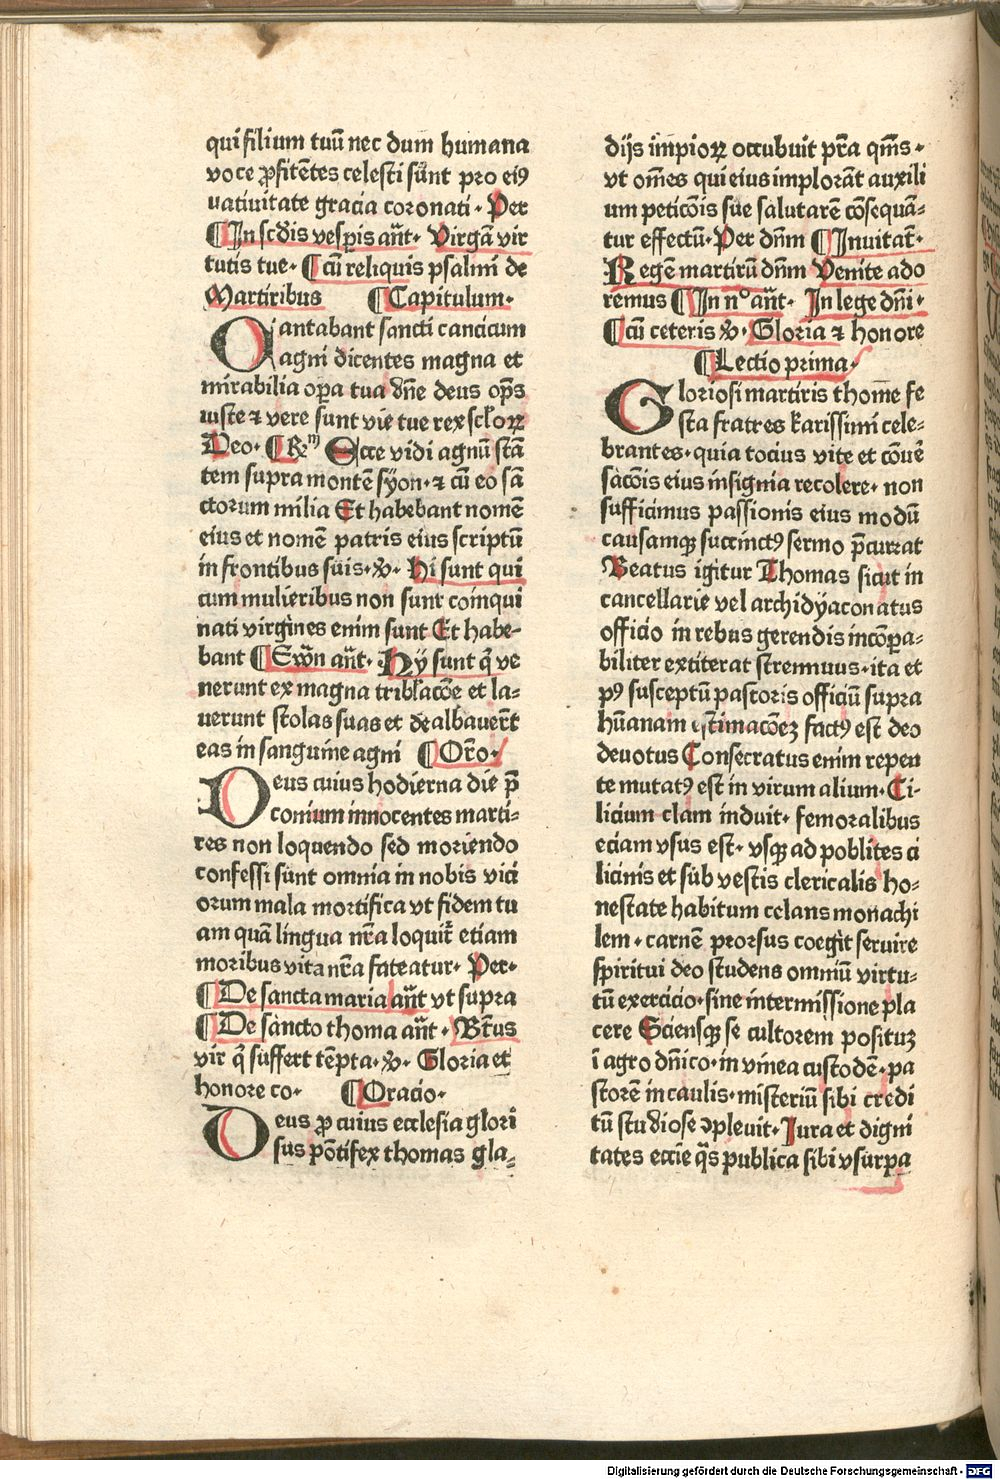 qui filium tuū nec dum humana
voce ꝓfitētes celesti sūnt pro eiꝰ
natiuitate gracia coronati· Per
¶In scdis vesꝑis añt· Virgā vir
tutis tue· ¶cū reliquis psalmi de
Martiribus ¶Capitulum·
Cantabant sancti canticum
agni dicentes magna et
mirabilia oꝑa tua dn̄e deus op̄s
iuste ⁊ vere sunt vie tue rex sclorꝝ
Deo· ¶R̄ Ecce vidi agnū stā
tem supra montē sÿon· ⁊ cū eo sā
ctorum milia Et habebant nomē
eius et nomē patris eius scriptū
in frontibus suis· ꝟ· Hi sunt qui
cum mulieribus non sunt coinqui
nati virgines enim sunt Et habe-
bant ¶Sup̄ añt· Hÿ sunt q̄ ve
nerunt ex magna triblacōe et la⸗
uerunt stolas suas et dealbauer̄t
eas in sanguine agni ¶Or̄o·
Deus cuius hodierna die p̄
conium innocentes marti⸗
res non loquendo sed moriendo
confessi sunt omnia in nobis vici
orum mala mortifica vt fidem tu
am quā lingua nr̄a loquit̄ etiam
moribus vita nr̄a fateatur· Per·
¶De sancta maria añt vt supra
¶De sancto thoma añt· Btūs
vir q̄ suffert tēpta· ꝟ· Gloria et
honore co· ¶Oracio·
Deus ꝓ cuius ecclesia glori
sus pōtifex thomas gla⸗
dijs impiorꝝ occubuit p̄ra qm̄s·
vt om̄es qui eius implorāt auxili
um peticōis sue salutarē cōsequā⸗
tur effectū· Per dn̄m ¶Inuitat̄·
Regē martirū dn̄m Venite ado
remus ¶In n° añt· In lege dn̄i·
¶cū ceteris ꝟ· Gloria ⁊ honore
¶Lectio prima·
Gloriosi martiris thome fe
sta fratres karissimi cele⸗
brantes· quia tocius vite et cōuē
sacōis eius insignia recolere· non
sufficimus passionis eius modū
causamqꝫ succinctꝰ sermo p̄currat
Beatus igitur Thomas sicut in
cancellarie vel archidÿaconatus
officio in rebus gerendis incōpa⸗
biliter extiterat strennuus· ita et
pꝰ susceptū pastoris officiū supra
hūanam estimacōeꝫ factꝰ est deo
deuotus Consecratus enim repen
te mutatꝰ est in virum alium· Ci⸗
licium clam induit· femoralibus
eciam vsus est· vsqꝫ ad poblites ci
licinis et sub vestis clericalis ho⸗
nestate habitum celans monachi
lem· carnē prorsus coegit seruire
spiritui deo studens omniū virtu⸗
tū exercicio· sine intermissione pla
cere Sciensqꝫ se cultorem posituꝫ
ī agro dn̄ico· in vinea custodē· pa
storē in caulis· misteriū sibi credi
tū studiose ꝯpleuit· Iura et digni
tates eccīe q̄s publica sibi vsurpa
Digitalisierung gefördert durch die Deutsche Forschungsgemeinschaft - DFG